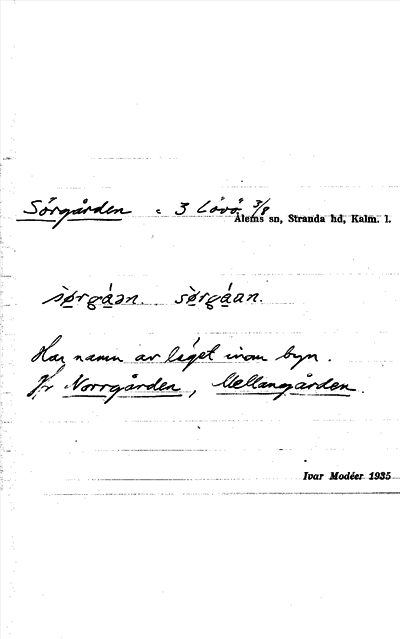 Sörgården = 3 Lövö 3/8
Ålems sn, Stranda hd, Kalm. l.
sø̀rgá̱ən. sø̀rgá̱an.
Har namn av läget inom byn.
Jfr Norrgården, Mellangården.
Ivar Modéer 1935